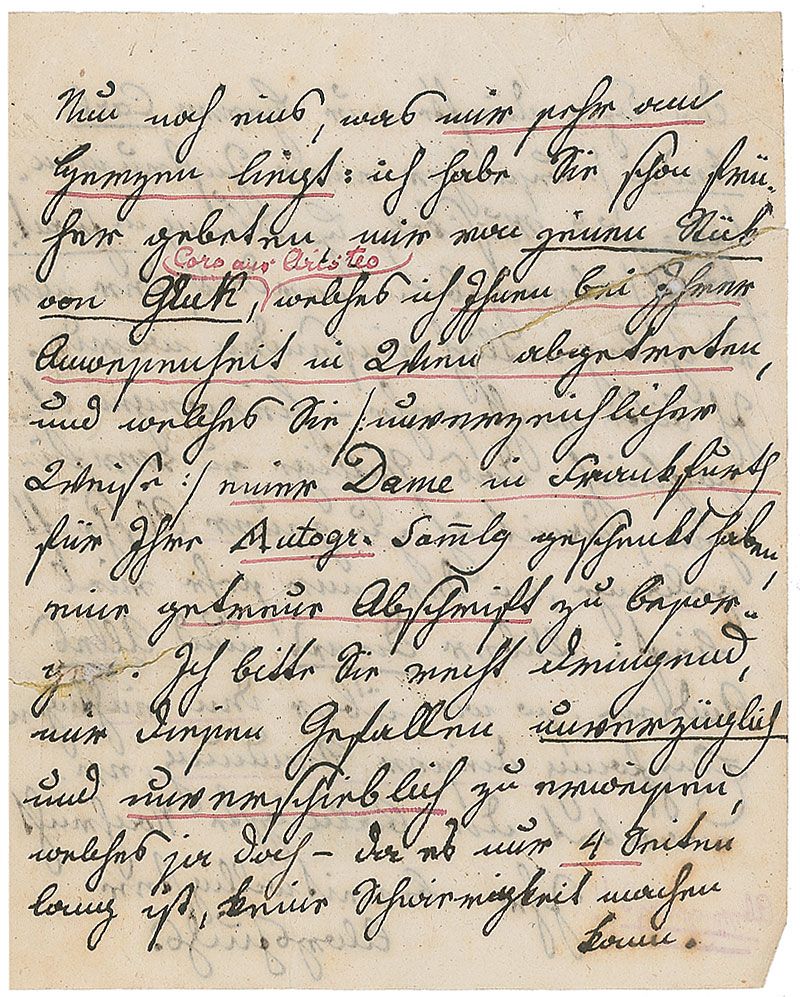 Nun noch eins, was mir sehr am
Herzen liegt: ich habe Sie schon frü-
her gebeten, mir von jenem Stück
Coro aus Aristeo
von Gluk, welches ich Ihnen bei Ihrer
Anwesenheit in Wien abgetreten,
und welches Sie /: unverzeichlicher
Weise :/ einer Dame in Frankfurth
für Ihre Autogr. Sam̅lg geschenkt haben,
eine getreue Abschrift zu besor-
Ich bitte Sie recht dringend,
mir diesen Gefallen unverzüglich
und unverschieblich zu erweisen,
welches ja doch – da es nur 4 Seiten
lang ist, keine Schwierigkeit machen
kann.